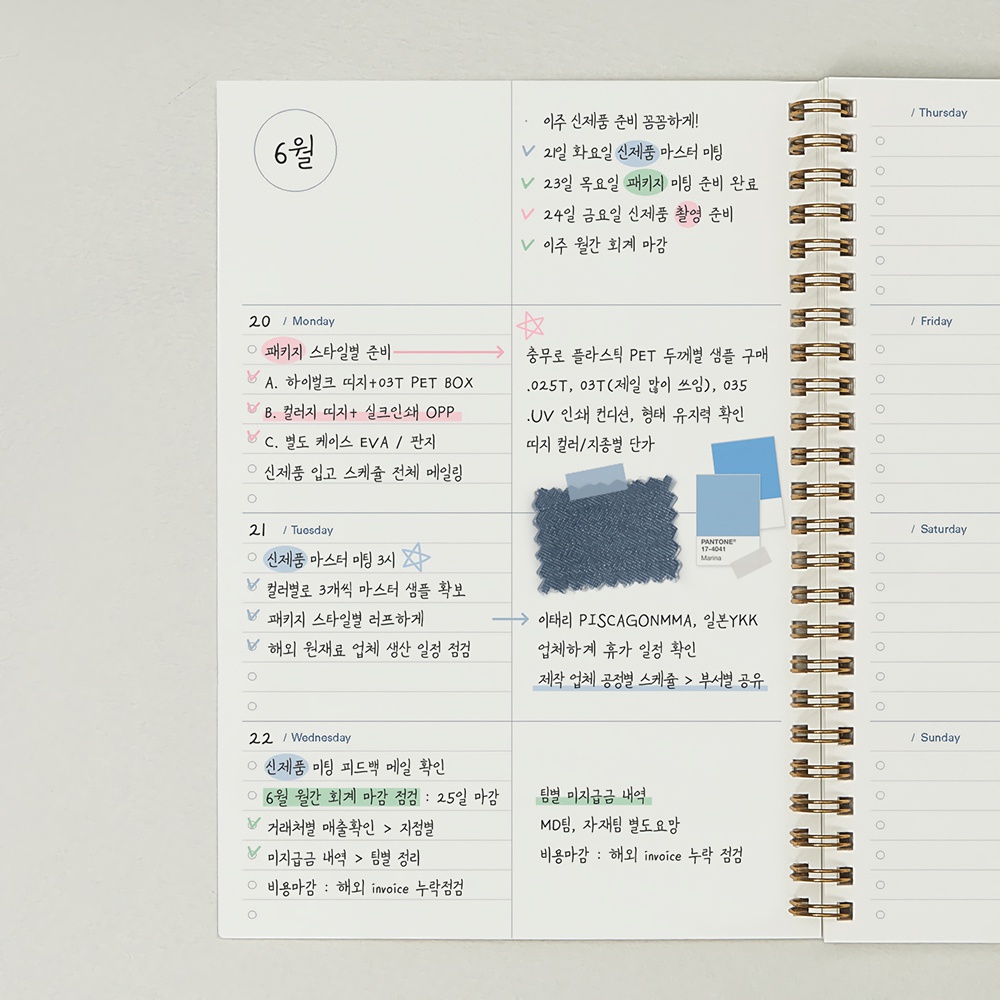 6월
· 이주 신제품 준비 꼼꼼하게!
21일 화요일 신제품 마스터 미팅
23일 목요일 패키지 미팅 준비 완료
24일 금요일 신제품 촬영 준비
이주 월간 회계 마감
20 / Monday
패키지 스타일별 준비
A. 하이벌크 띠지+03T PET BOX
B. 컬러지 띠지+ 실크인쇄 OPP
C. 별도 케이스 EVA / 판지
신제품 입고 스케쥴 전체 메일링
충무로 플라스틱 PET 두께별 샘플 구매
.025T, 03T(제일 많이 쓰임), 035
.UV 인쇄 컨디션, 형태 유지력 확인
띠지 컬러/지종별 단가
PANTONE®
17-4041
Marina
21 / Tuesday
신제품 마스터 미팅 3시
컬러별로 3개씩 마스터 샘플 확보
패키지 스타일별 러프하게
해외 원재료 업체 생산 일정 점검
이태리 PISCAGONMMA, 일본YKK
업체하계 휴가 일정 확인
제작 업체 공정별 스케쥴 > 부서별 공유
22 / Wednesday
신제품 미팅 피드백 메일 확인
6월 월간 회계 마감 점검 : 25일 마감
거래처별 매출확인 > 지점별
미지급금 내역 > 팀별 정리
비용마감 : 해외 invoice 누락점검
팀별 미지급금 내역
MD팀, 자재팀 별도요망
비용마감 : 해외 invoice 누락 점검
/ Thursday
/ Friday
/ Saturday
/ Sunday